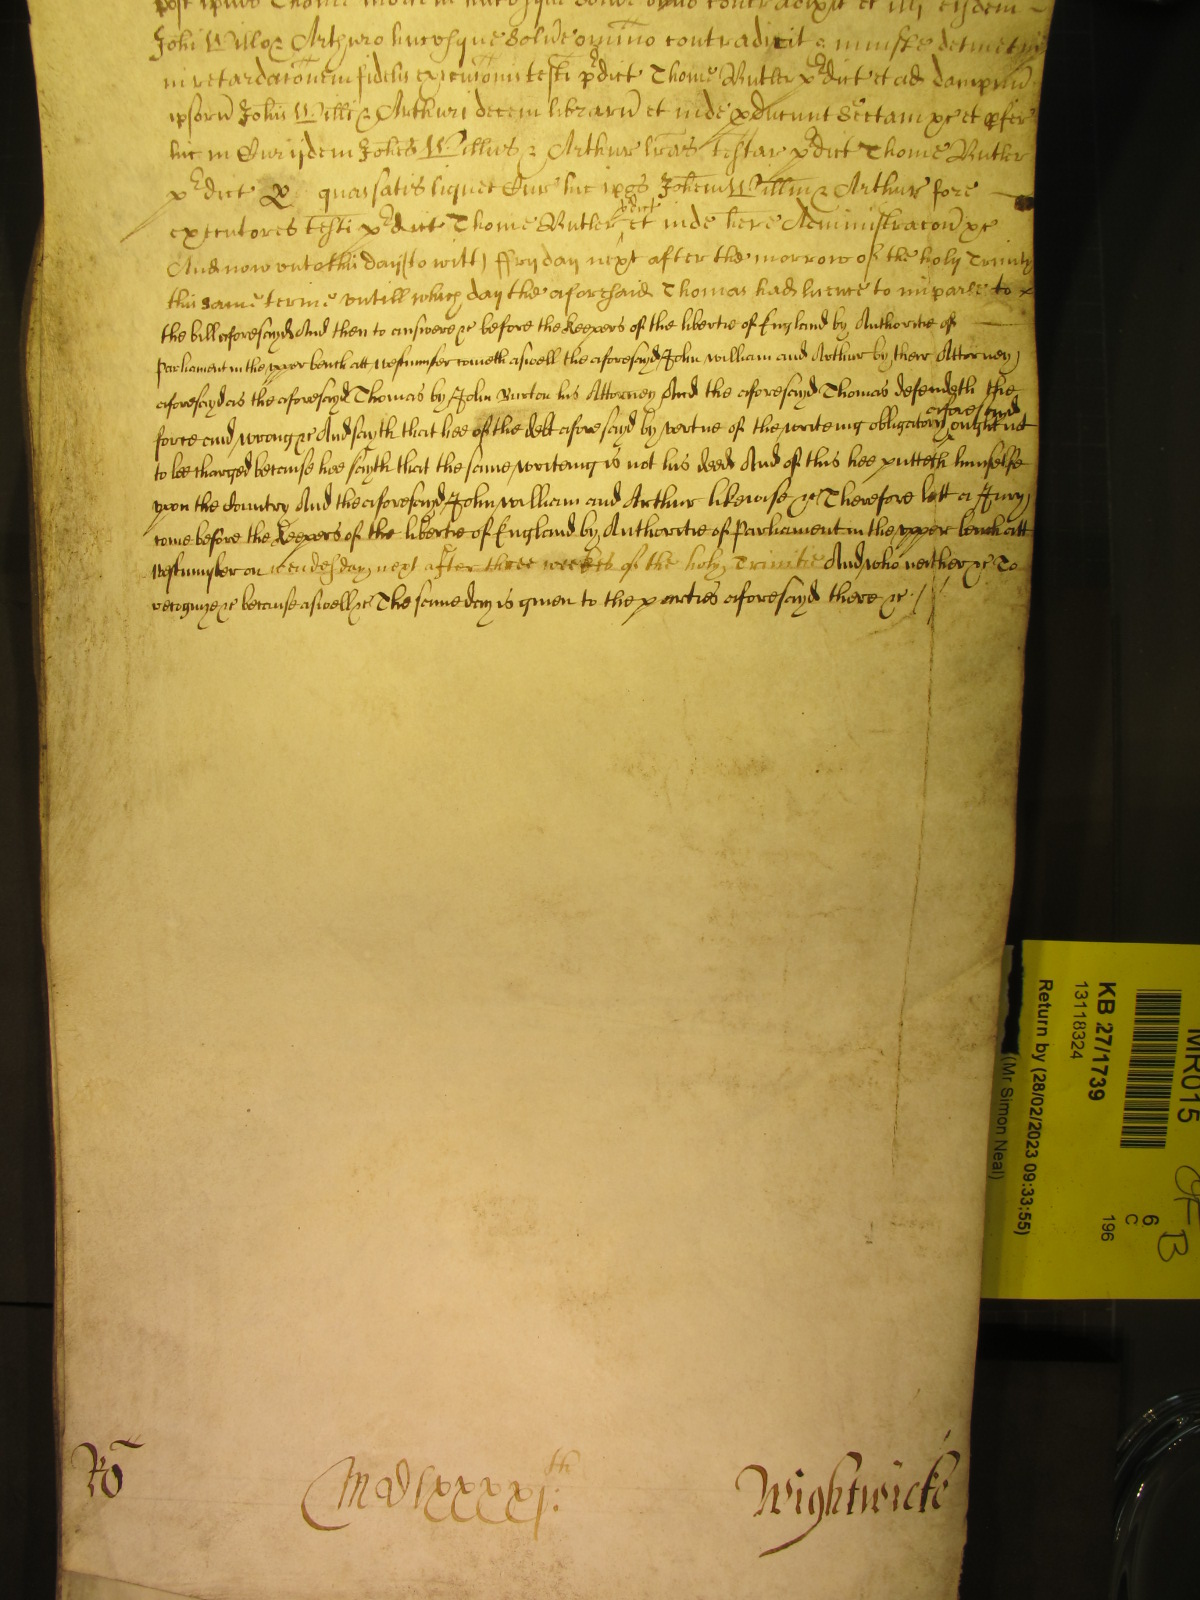 post ipius Thome mortem hucusque solve omno contradixit et illi eisdem
Johi Willo & Arthuro hucusque solve omnino contradicit & iniuste detinet
in retardaconem fidelis execuconis testi pdict Thome Butler pdict et ad dampnu
ipsoru Johis Willi & Arthuri decem libraru et inde pducunt sectam &c et pfer
hic in Cur ijdem Johes Willus & Arthur lras testar pdict Thome Butler
pdict Q quas satis liquet Cur hic ipos Johem Willm & Arthur fore
executores testi pdict Thome Butler pdict et inde here Administracon &c
And now untothis day (to witt) ffryday next after the morrow of the holy Trinity
this same terme untill which day the aforesaid Thomas had licence to imparle to
the bill aforesayd And then to answere &c before the Keepers of the libertie of England by Authoritie of
Parliament in the upper bench att westminster cometh aswell the aforesayd John william and Arthur by their Attorney
aforesayd as the aforesayd Thomas by John Burton his Attorney And the aforesayd Thomas defendeth the
force and wrong &c And sayth that hee of the debt aforesayd by vertue of the writeing obligatory aforesayd ought not
to bee charged because hee sayth that the same writeing is not his deed And of this hee putteth himselfe
upon the Countrey And the aforesayd John william and Arthur likewise &c Therefore lett a Jury
come before the Keepers of the libertie of England by Authoritie of Parliament in the upper bench att
westminster on wendesday next after three weekes of the holy Trinitie And who neither &c To
recognize &c because aswell &c The same day is given to the parties aforesayd there &c
Ro
MDLXXXXj:th
Wightwicke
MR015
KB 27/1739
13118324
Return by (28/02/2023 09:33:55)
(Mr Simon Neal)
6
C
196